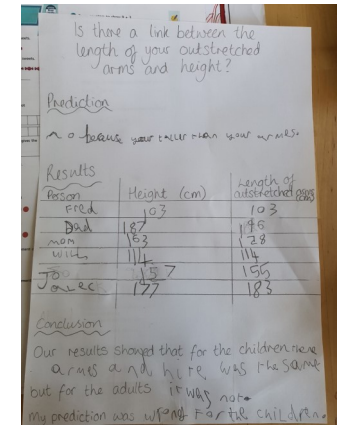 Is there a link between the
length of your outstretched
arms and height?
Prediction
no because your taller than your armes.
Results
Person Height (cm) Length of outstretched arms (cm)
Fred 103 103
Dad 187 196
mom 163 128
will 114 114
Jo 157 155
177 183
Conclusion
Our results showed that for the children there
armes and hire was the same
but for the adults it was not.
My prediction was wrong for the children.